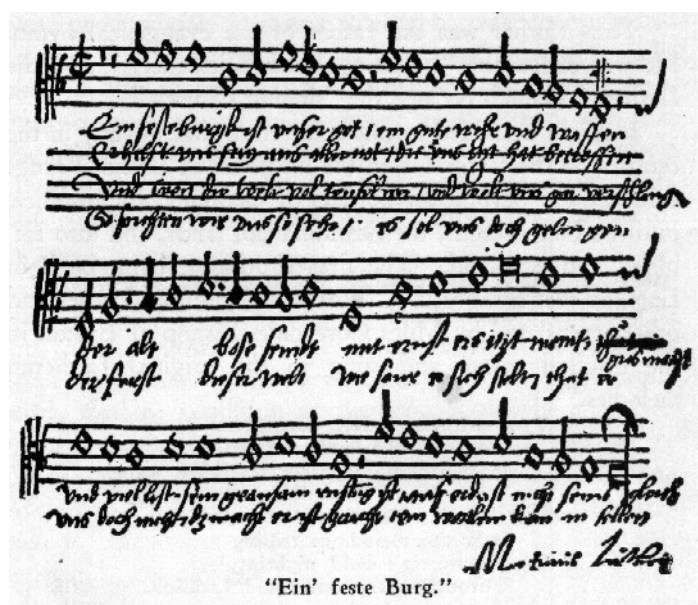 Ein feste burgk ist vnser got ein gute wehr vnd waffen
Er hilfft vns frey aus aller not die vns itzt hat betroffen
Vnd wen die welt vol teufel wer vnd wolt vns gar
So furchten wir vns so sehr es sol vns doch gelingen
Der alt bose feindt mit ernst ers itzt meint
der furst dieser welt wie saur er sich stelt that er
Vnd viel list sein grausam rustung ist auf erd ist nicht seins gleich
vns doch nicht er ist ein wortlein kan in fellen
Martinus Luther
"Ein' feste Burg."